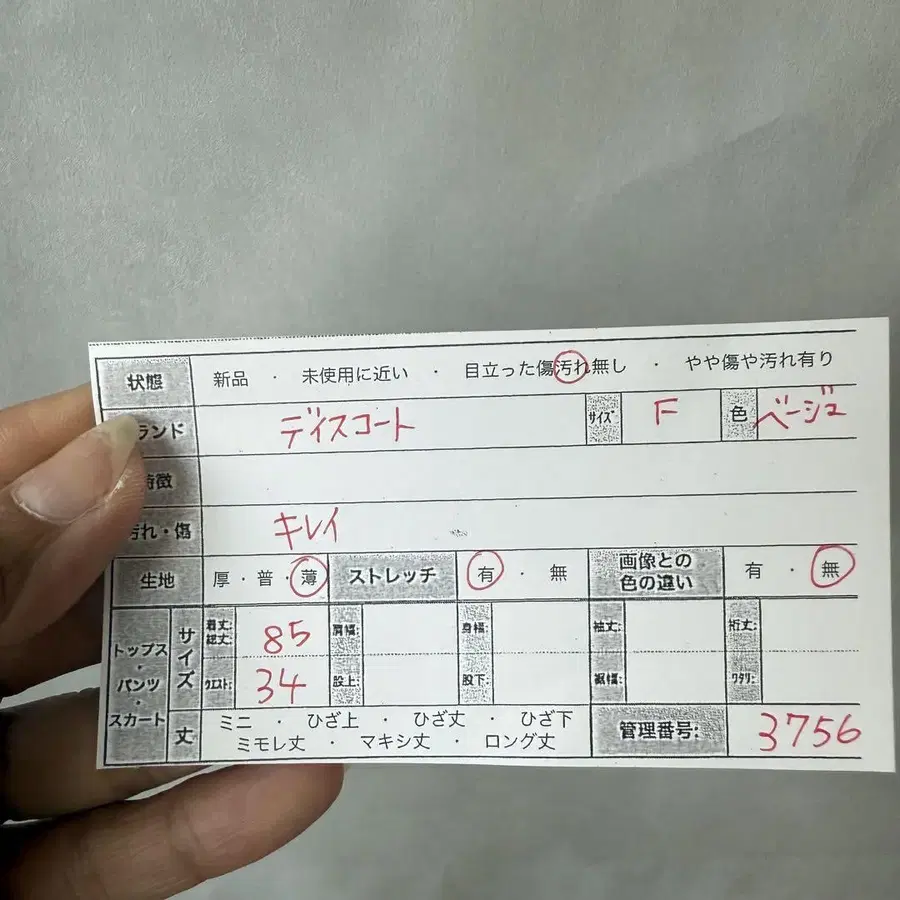 状態 新品 ・ 未使用に近い ・ 目立った傷汚れ無し ・ やや傷や汚れ有り
ランド ディスコート サイズ F 色 ベージュ
特徴
汚れ・傷 キレイ
生地 厚・普・薄 ストレッチ 有 ・ 無 画像との色の違い 有 ・ 無
トップス・パンツ・スカート サイズ 着丈: 総丈: 85 肩幅: 身幅: 袖丈: 裄丈:
ウエスト: 34 股上: 股下: 裾幅: ワタリ:
丈 ミニ ・ ひざ上 ・ ひざ丈 ・ ひざ下
ミモレ丈 ・ マキシ丈 ・ ロング丈
管理番号: 3756